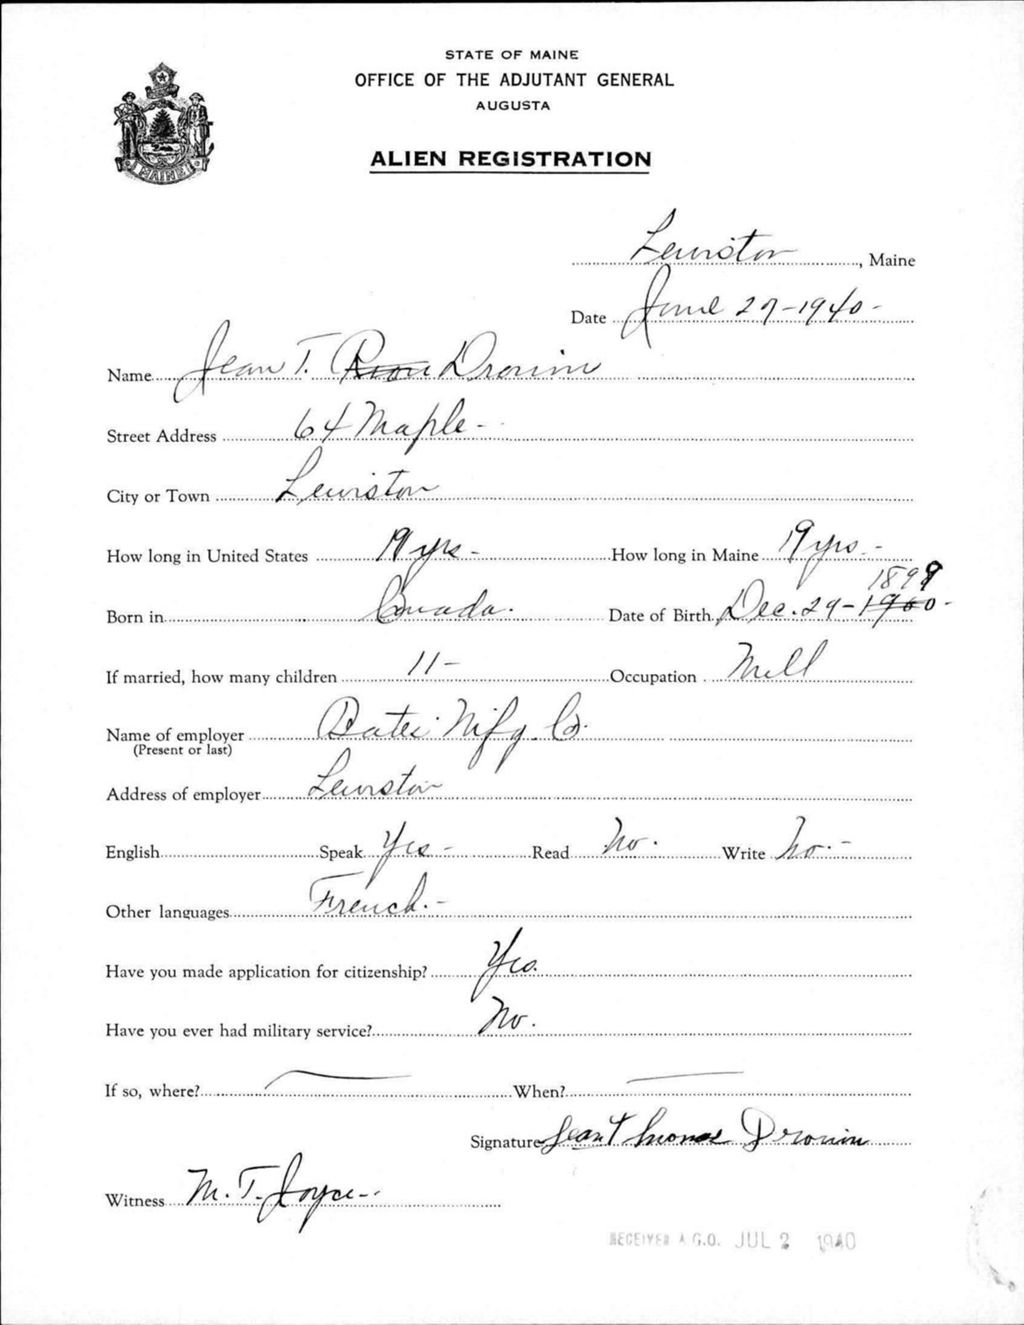 STATE OF MAINE
OFFICE OF THE ADJUTANT GENERAL
AUGUSTA
MAINE
ALIEN REGISTRATION
Lewiston, Maine
Date June 27-1940-
Name Jean T. Drouin
Street Address 64 Maple-
City or Town Lewiston
How long in United States 19 yrs - How long in Maine 19 yrs. -
1899
Born in Canada. Date of Birth Dec. 29-1900-
If married, how many children 11- Occupation Mill
Name of employer Bates Mfg. Co.
(Present or last)
Address of employer Lewiston
English Speak Yes - Read No. Write No. -
Other languages French. -
Have you made application for citizenship? Yes.
Have you ever had military service? No.
If so, where? When?
Signature Jean Thomas Drouin
Witness M. T. Joyce-
RECEIVED A.G.O. JUL 2 1940